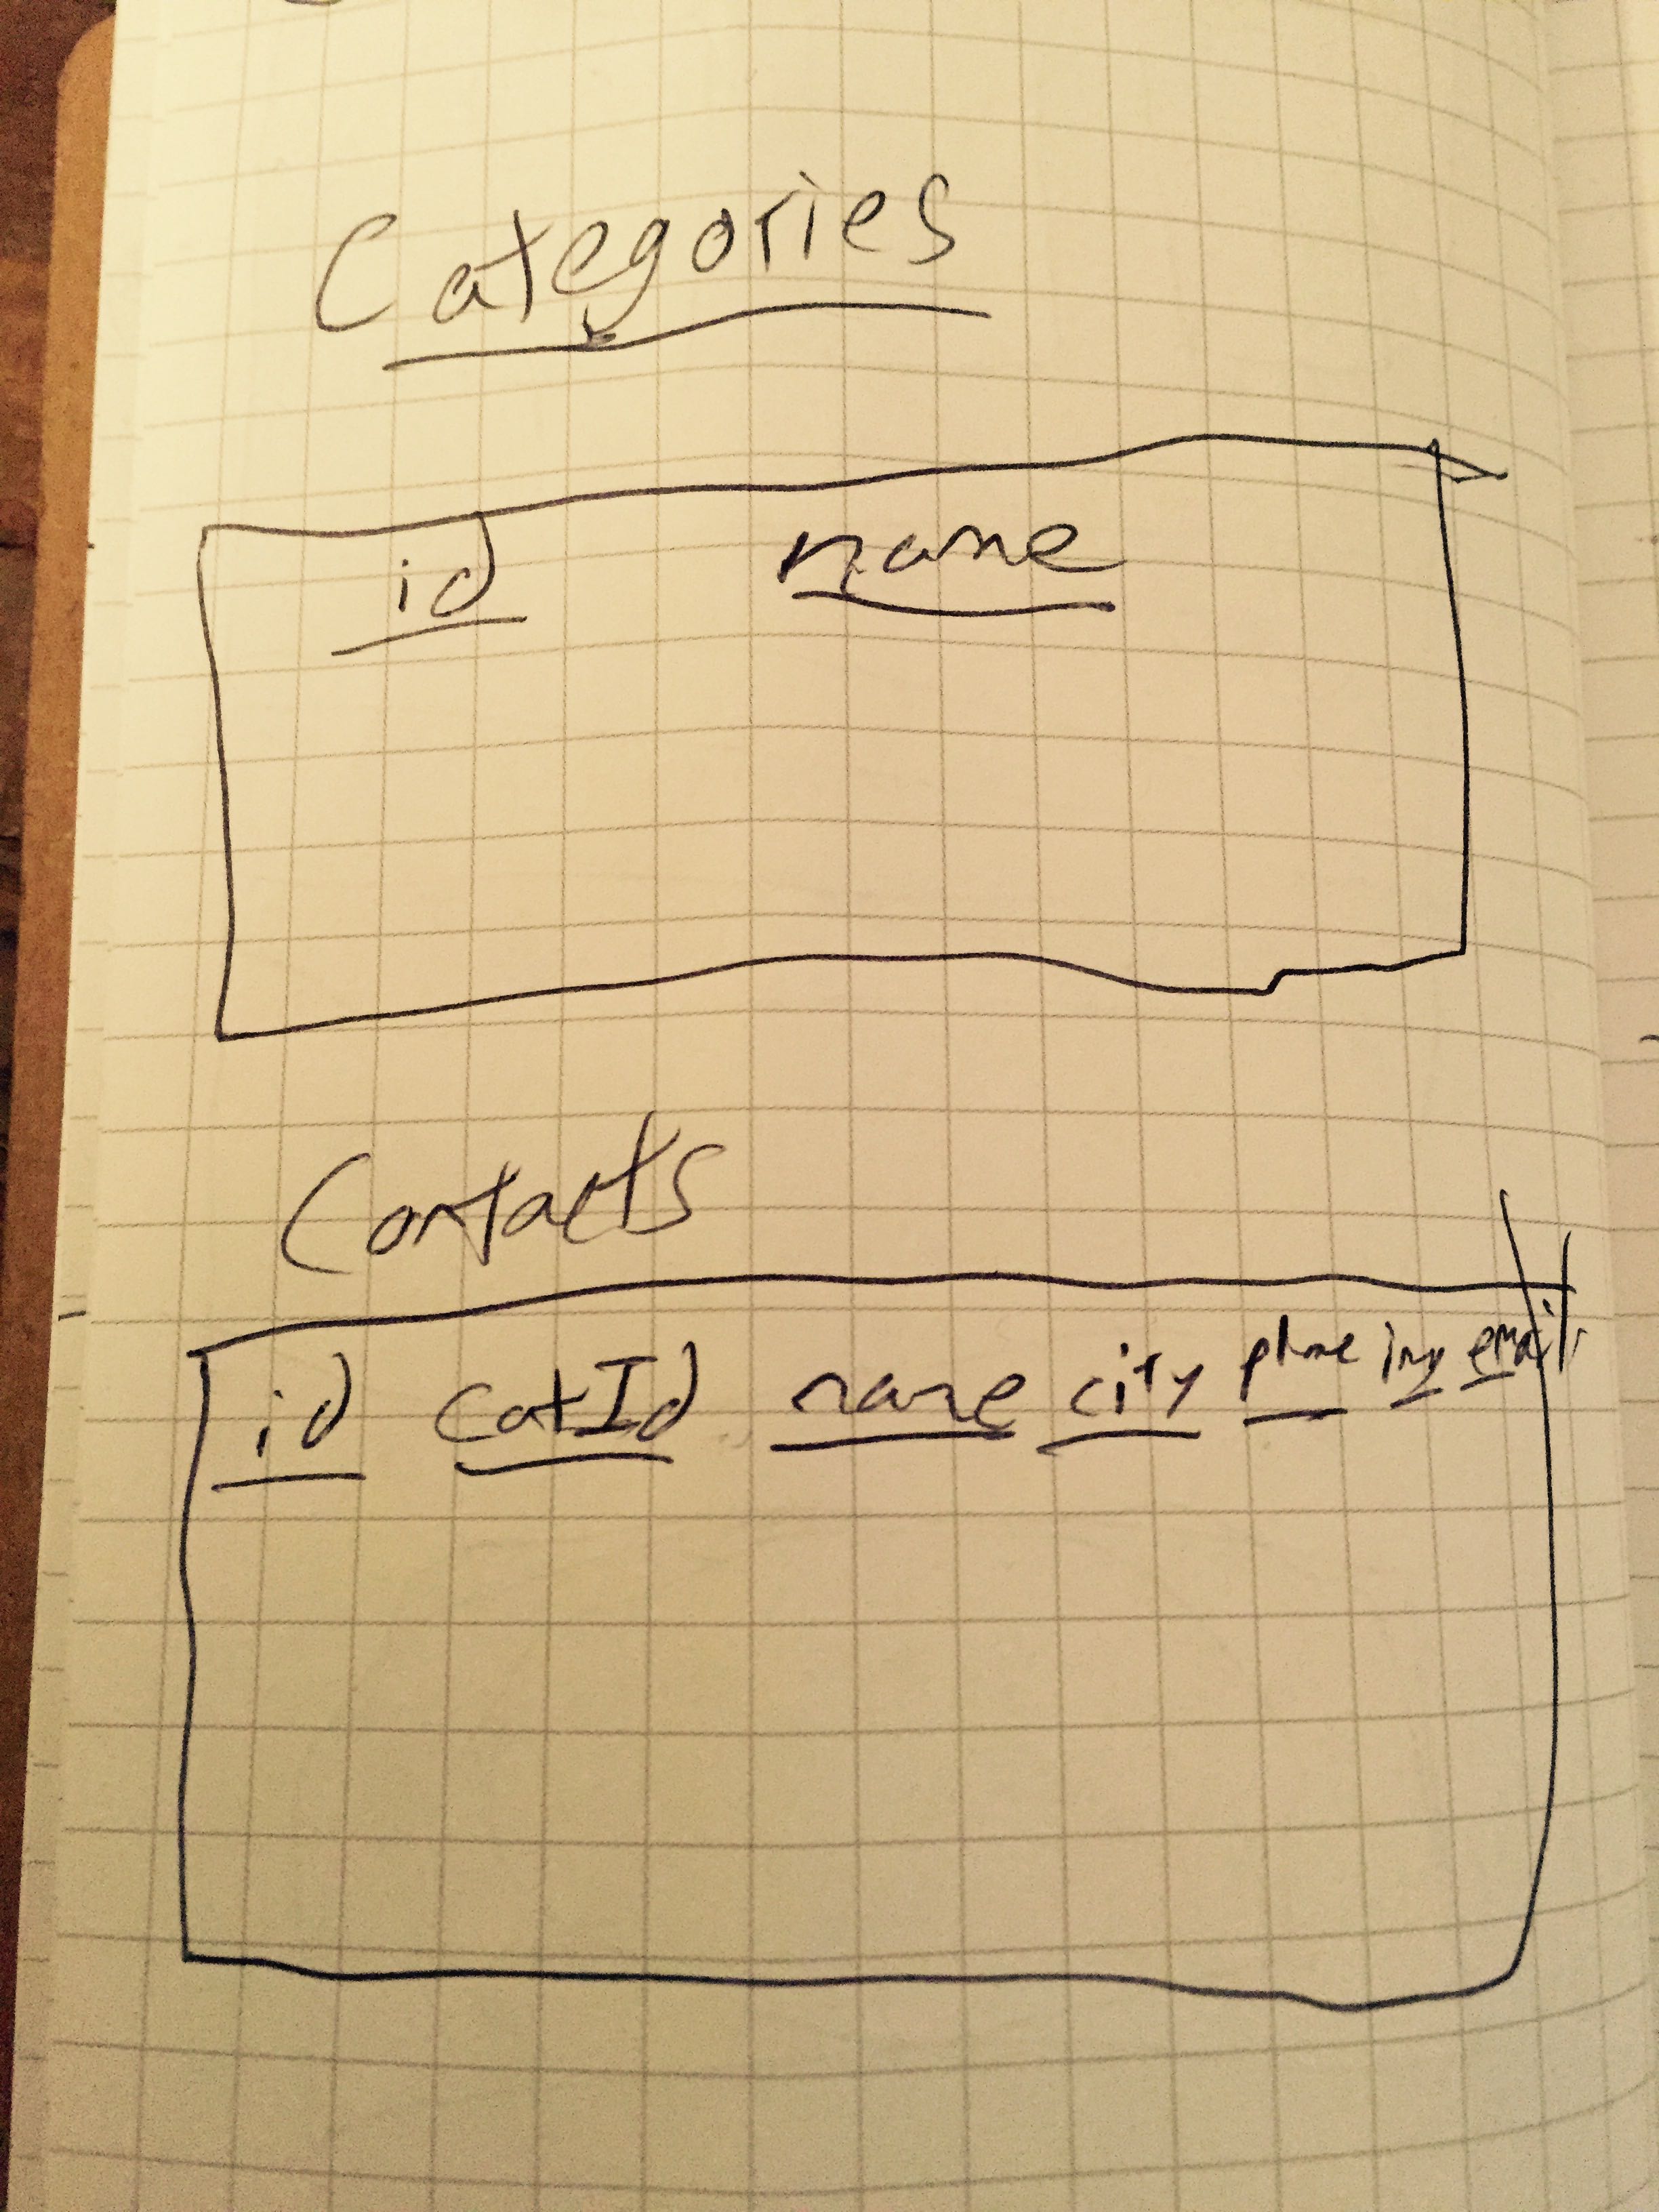 Categories
id name
Contacts
id catId name city phone img email